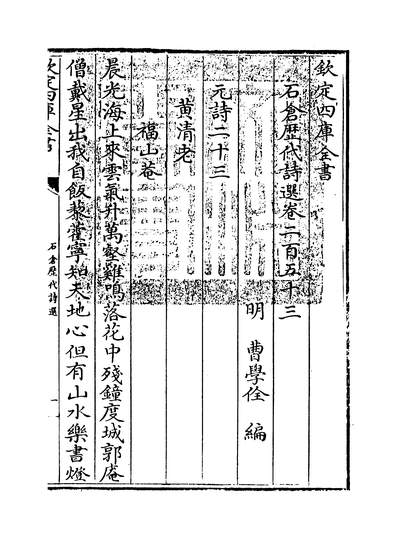 欽定四庫全書
石倉歴代詩選卷二百五十三
明 曹學佺 編
元詩二十三
黄清老
𥛚山菴
晨光海上來雲氣升萬壑雞鳴落花中殘鐘度城郭庵
僧戴星出我自飯藜藿寧知天地心但有山水樂書燈
欽定四庫全書
石倉歴代詩選
一